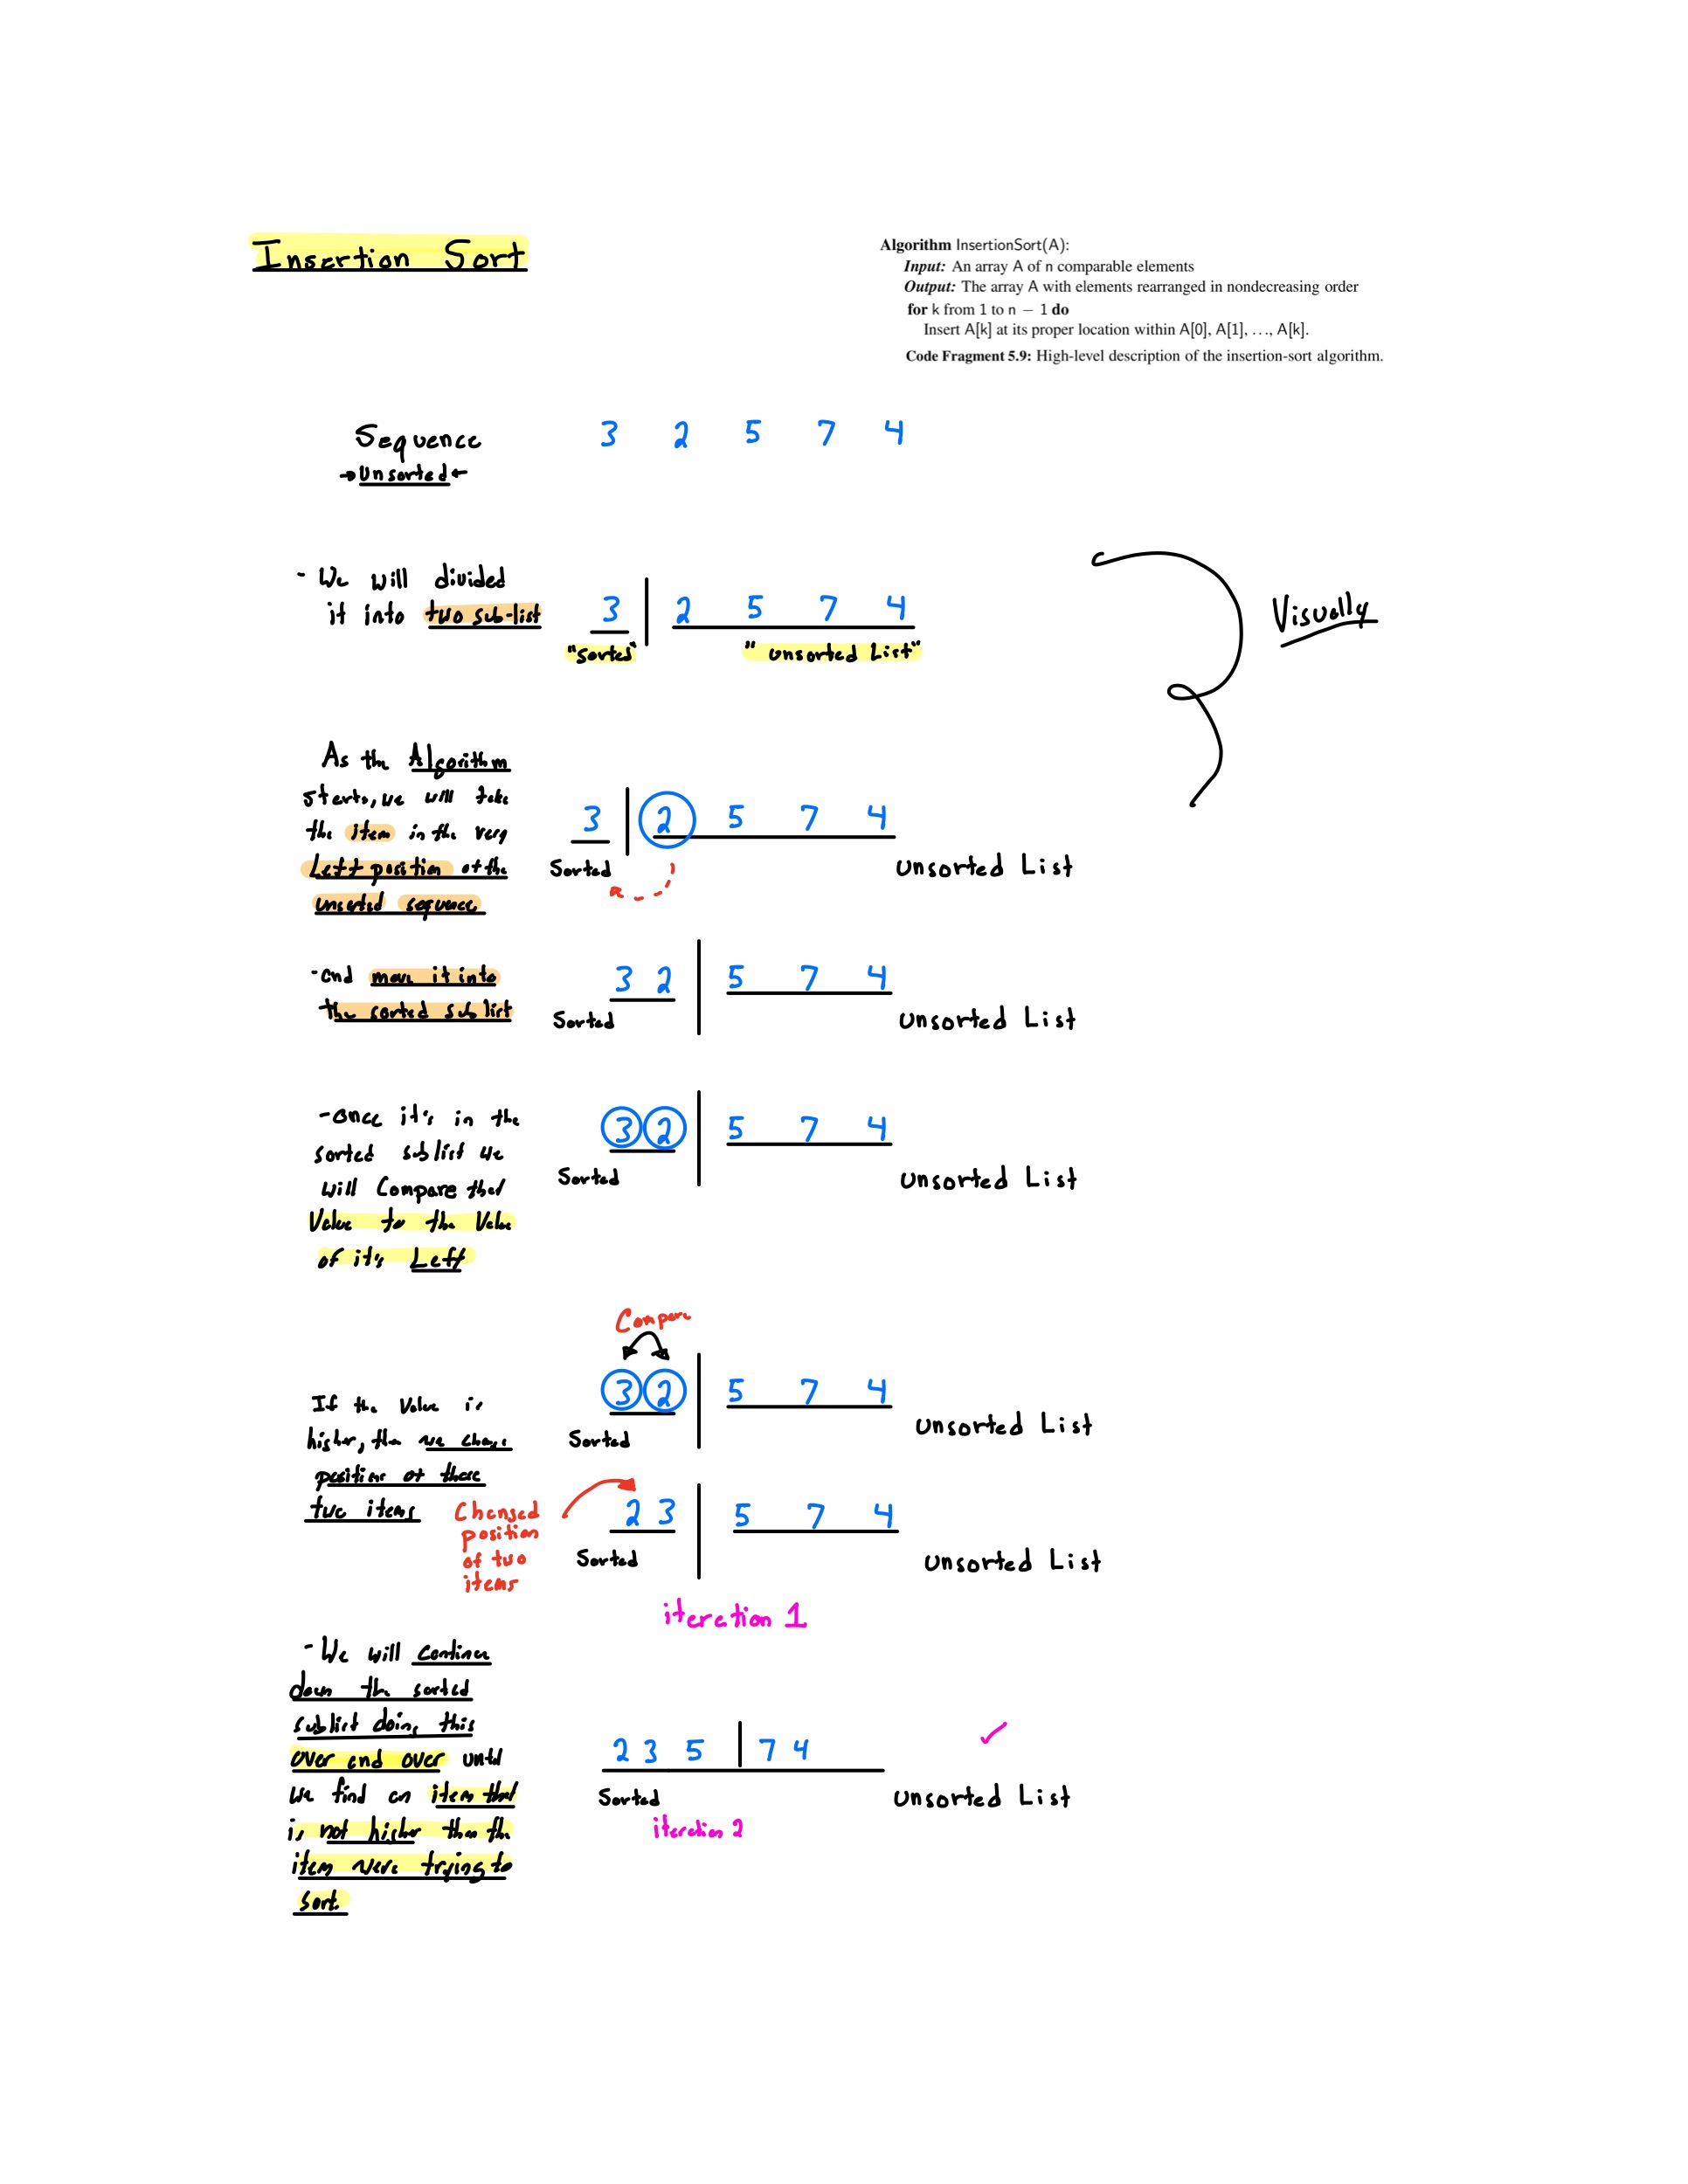 Insertion Sort
Algorithm InsertionSort(A):
Input: An array A of n comparable elements
Output: The array A with elements rearranged in nondecreasing order
for k from 1 to n − 1 do
Insert A[k] at its proper location within A[0], A[1], …, A[k].
Code Fragment 5.9: High-level description of the insertion-sort algorithm.
Sequence 3 2 5 7 4
→Unsorted←
- We will divided
it into two sub-list
3 | 2 5 7 4
"Sorted" "unsorted List"
Visually
As the Algorithm
starts, we will take
the item in the very
Left position of the
unsorted sequence
3 | 2 5 7 4
Sorted Unsorted List
-and move it into
the sorted sub list
3 2 | 5 7 4
Sorted Unsorted List
-once it's in the
sorted sublist we
will Compare that
Value to the Value
of it's Left
3 2 | 5 7 4
Sorted Unsorted List
Compare
3 2 | 5 7 4
Sorted Unsorted List
If the Value is
higher, then we change
positions of those
two items
Changed
position
of two
items
2 3 | 5 7 4
Sorted Unsorted List
iteration 1
-We will continue
down the sorted
sublist doing this
over and over until
we find an item that
is not higher than the
item were trying to
sort.
2 3 5 | 7 4 ✓
Sorted Unsorted List
iteration 2